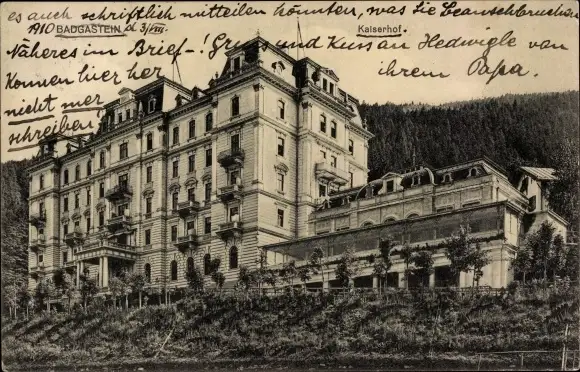 es auch schriftlich mitteilen könnten, was Sie beanschbruchen
1910 BADGASTEIN d. 3/VIII. Kaiserhof.
Näheres im Brief -! Gruss und Kuss an Hedwigle von
ihrem Papa.
Können hier her
nicht mer
schreiben!